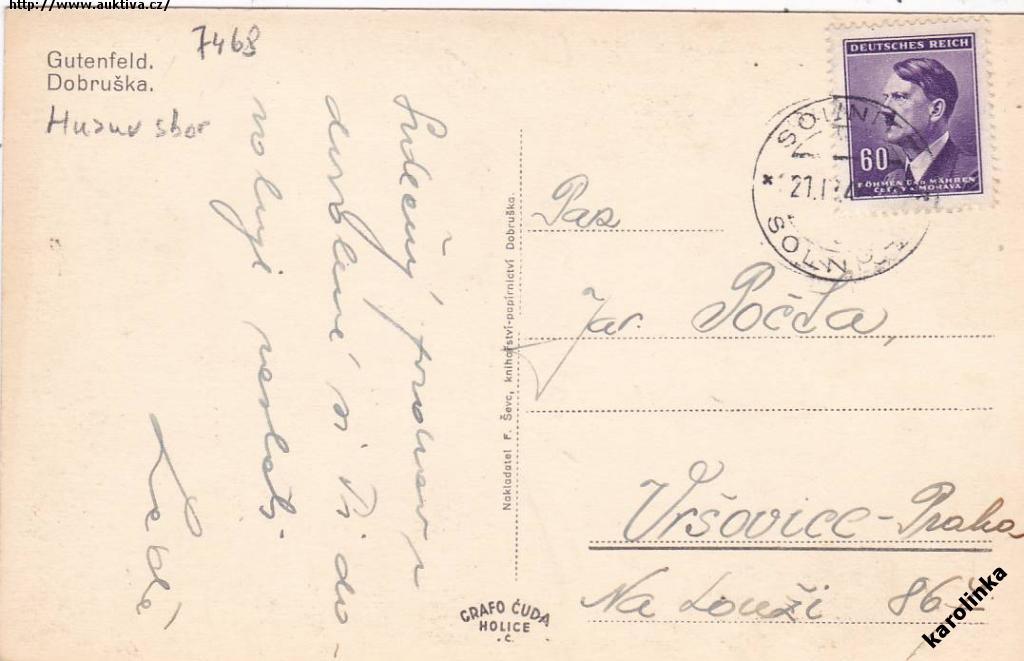 http://www.auktiva.cz/
7468
Gutenfeld.
Dobruška.
Husuv sbor
Srdečný pozdrav z
dovolené si Ti do-
Nakladatel F. Ševc, knihařství-papírnictví Dobruška.
GRAFO ČUDA
HOLICE
.Č.
DEUTSCHES REICH
60
BÖHMEN UND MÄHREN
ČECHY A MORAVA
SOLNITZ
21.
SOLNICE
Pan
Jar. Počta,
Vršovice-Praha
Na Louži 86
karolinka